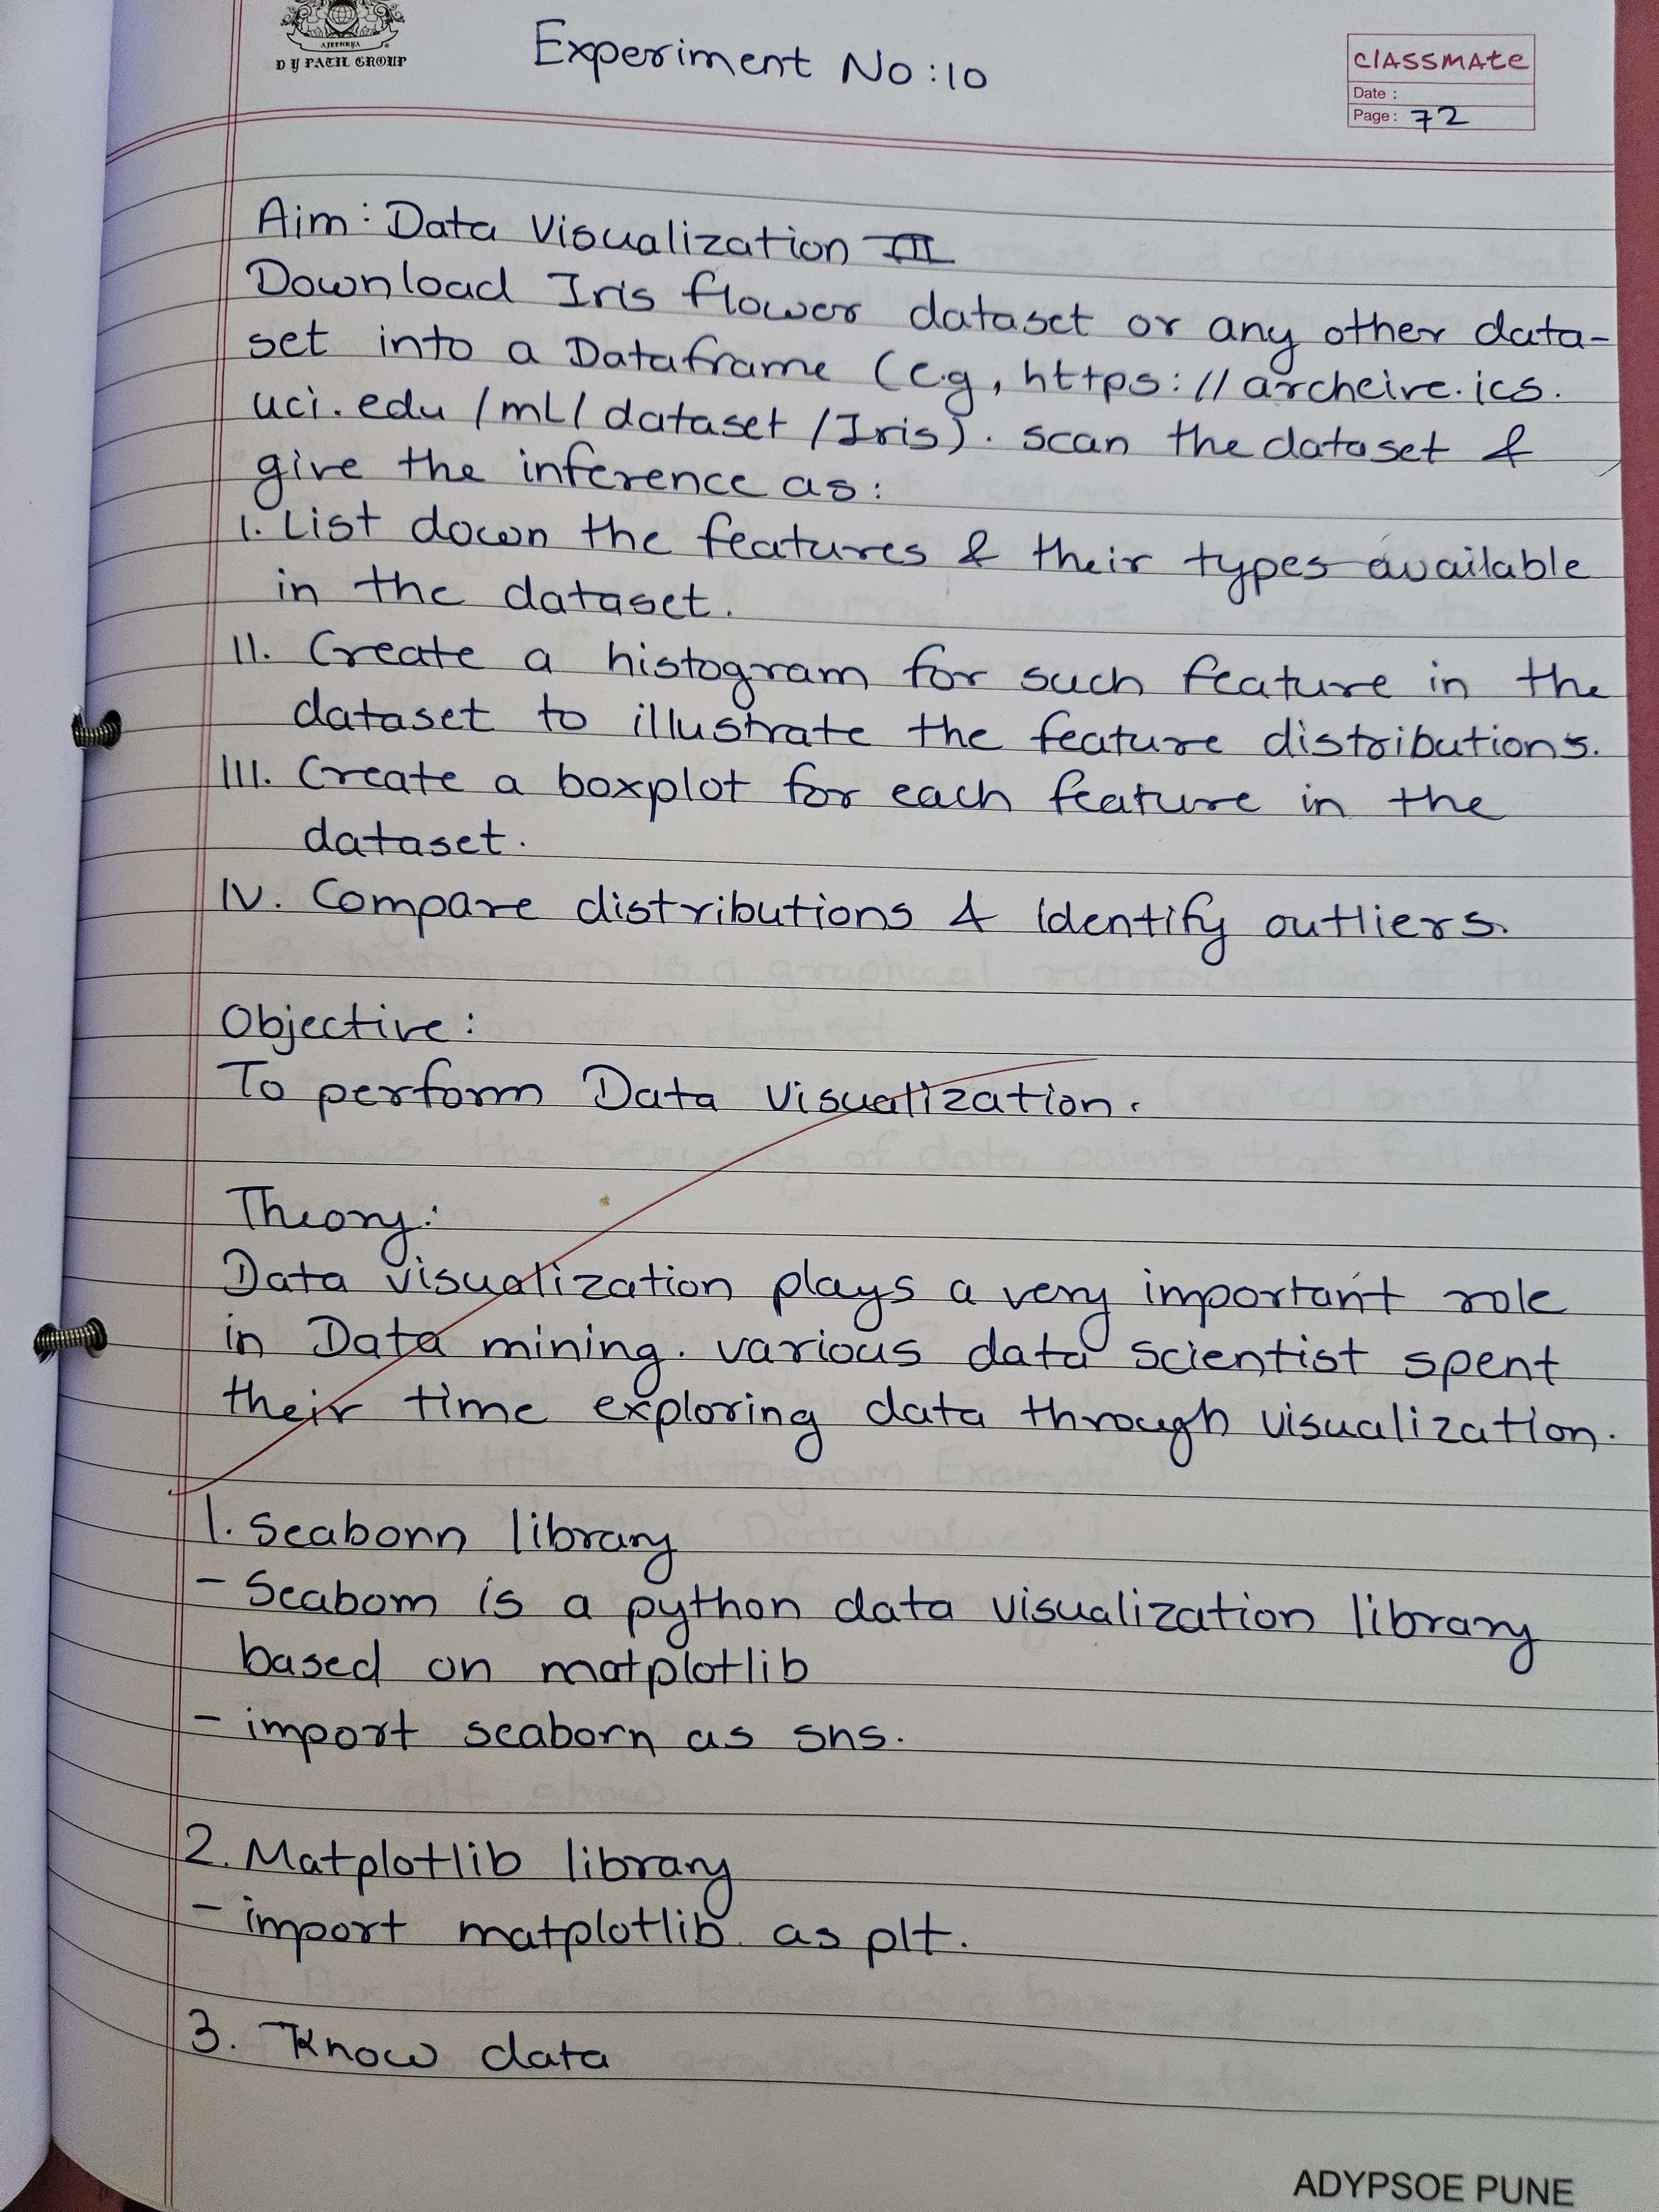 AJEENKYA
D Y PATIL GROUP
Experiment No:10
CLASSMATE
Date :
Page: 72
Aim: Data Visualization III
Download Iris flower dataset or any other data-
set into a Dataframe (e.g, https://archeive.ics.
uci.edu/ml/dataset/Iris). scan the dataset &
give the inference as:
I. List down the features & their types available
in the dataset.
II. Create a histogram for such feature in the
dataset to illustrate the feature distributions.
III. Create a boxplot for each feature in the
dataset.
IV. Compare distributions & Identify outliers.
Objective:
To perform Data Visualization.
Theory:
Data visualization plays a very important role
in Data mining. various data scientist spent
their time exploring data through visualization.
1. Seaborn library
- Seaborn is a python data visualization library
based on matplotlib
- import seaborn as sns.
2. Matplotlib library
- import matplotlib as plt.
3. Know data
ADYPSOE PUNE